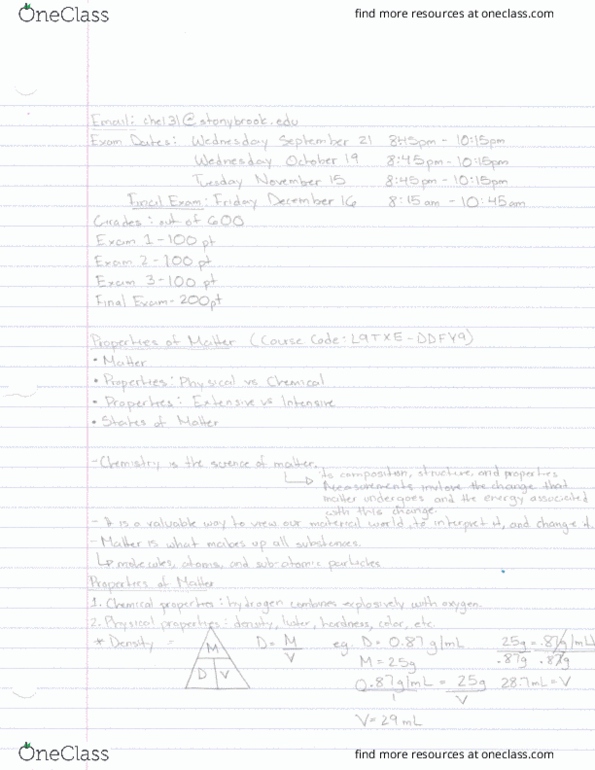 OneClass
find more resources at oneclass.com
Email: che131@stonybrook.edu
Exam Dates: Wednesday September 21 8:45pm - 10:15pm
Wednesday October 19 8:45pm - 10:15pm
Tuesday November 15 8:45pm - 10:15pm
Final Exam: Friday December 16 8:15am - 10:45am
Grades: out of 600
Exam 1 - 100 pt
Exam 2 - 100 pt
Exam 3 - 100 pt
Final Exam - 200pt
Properties of Matter (Course Code: L9TXE-DDFY9)
• Matter
• Properties: Physical vs Chemical
• Properties: Extensive vs Intensive
• States of Matter
- Chemistry is the science of matter.
↳ its composition, structure, and properties
Measurements involve the change that
matter undergoes and the energy associated
with this change.
- It is a valuable way to view our material world, to interpret it, and change it.
- Matter is what makes up all substances.
↳ molecules, atoms, and sub-atomic particles
Properties of Matter
1. Chemical properties: hydrogen combines explosively with oxygen.
2. Physical properties: density, luster, hardness, color, etc.
* Density = M D V D = M/V eg. D = 0.87 g/mL 25g/.87g = .87g/mL/.87g
M = 25g
0.87g/mL/1 = 25g/V 28.7mL = V
V = 29 mL
OneClass
find more resources at oneclass.com